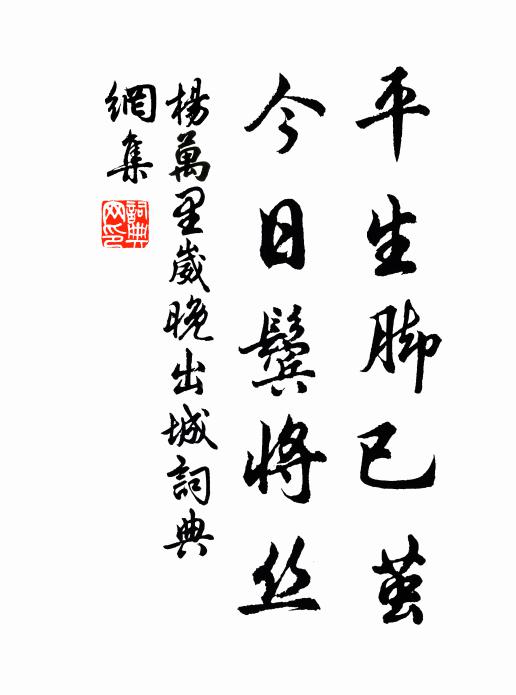 平生脚已茧
今日鬓将丝
楊萬里歲晚出城詞典
網集
詞典
网印